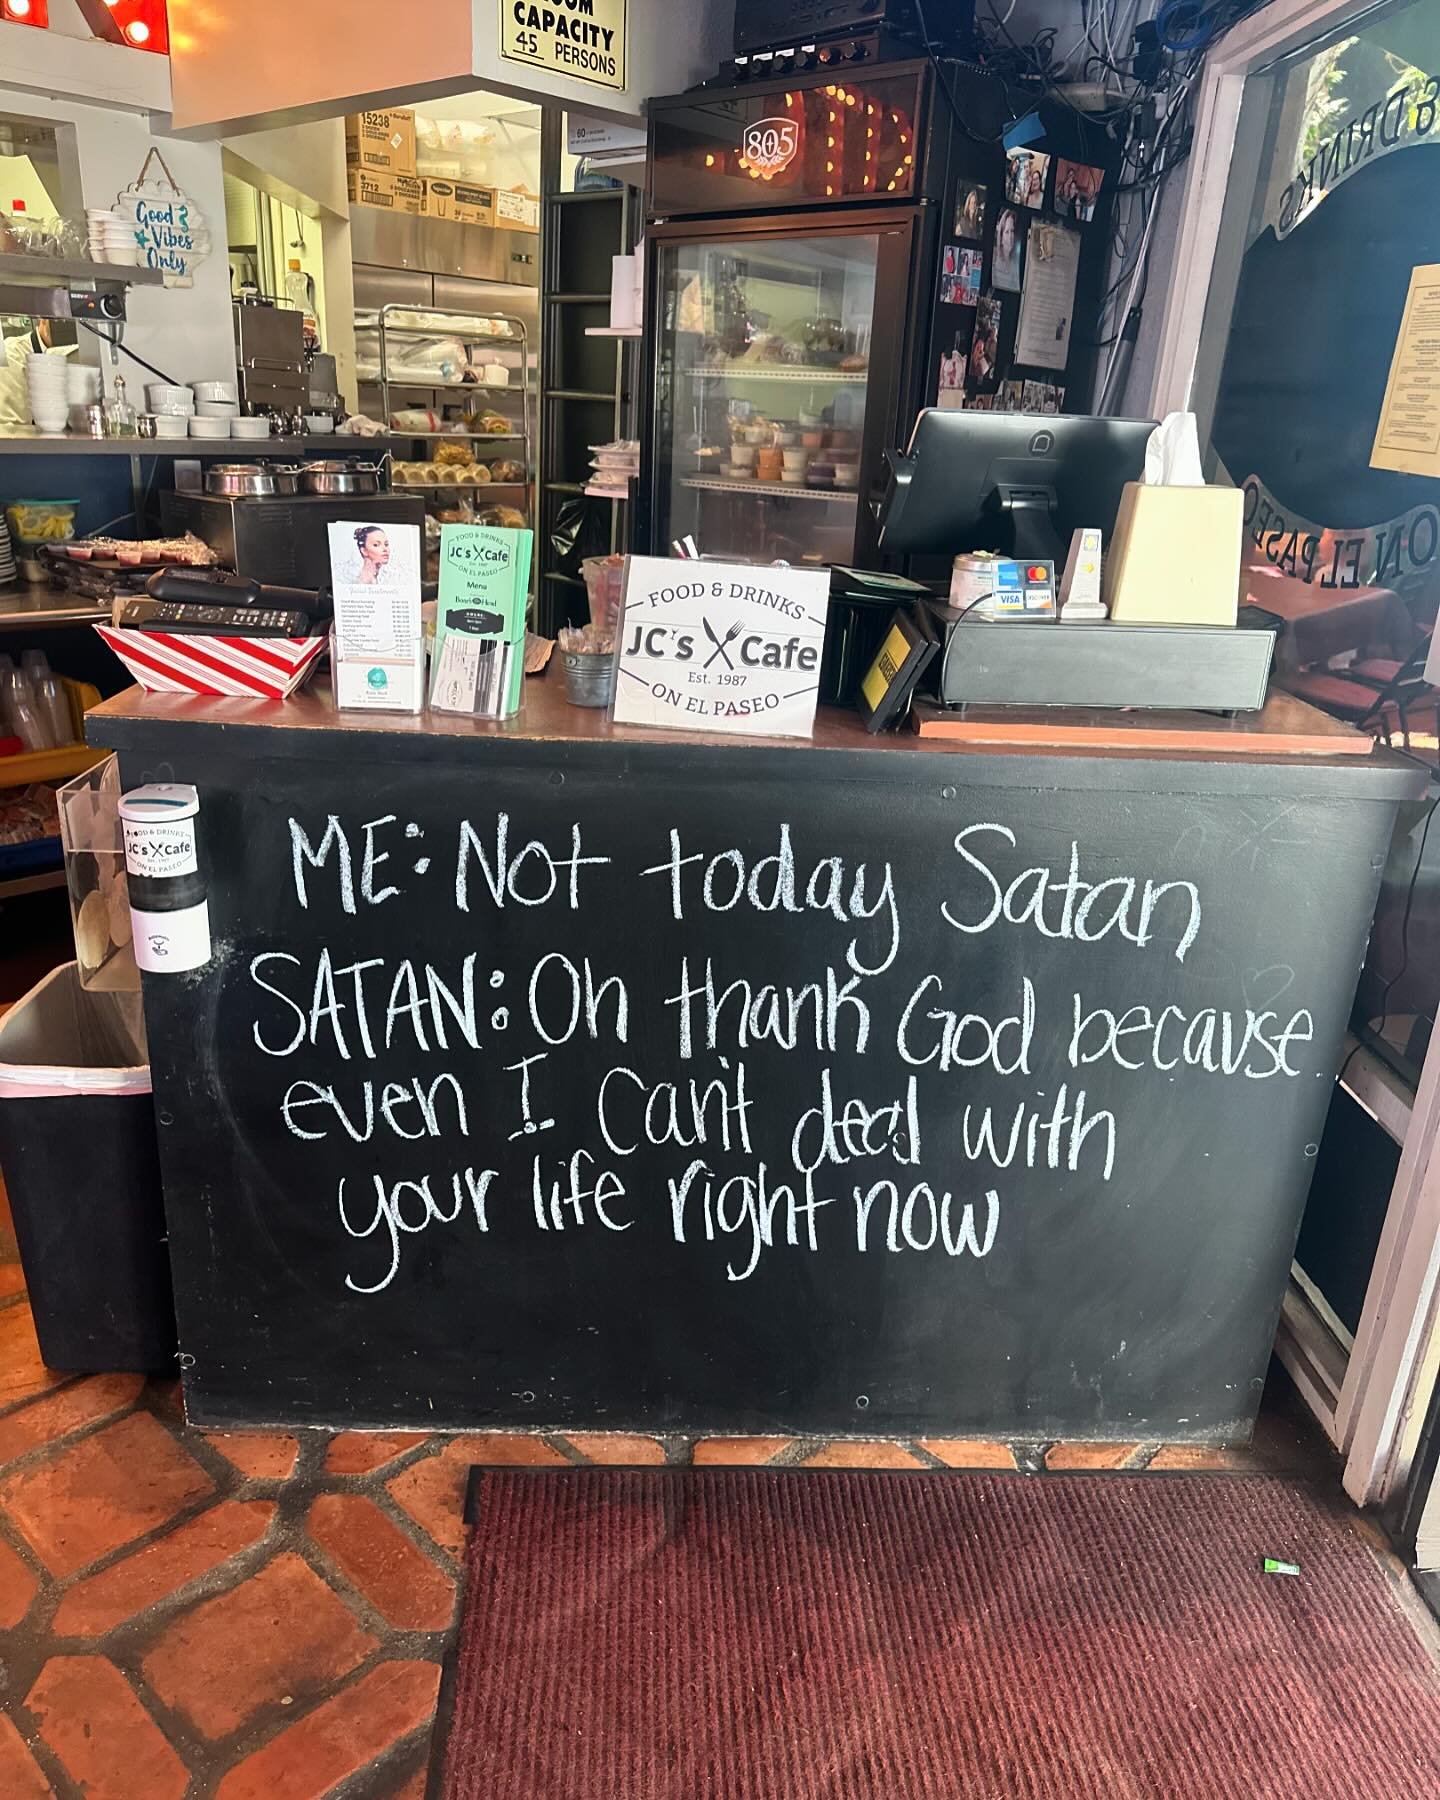 ROOM
CAPACITY
45 PERSONS
15238
3712
805
Good
Vibes
Only
& DRINKS
ON EL PASEO
FOOD & DRINKS
JC's Cafe
ON EL PASEO
Menu
Boar's Head
FOOD & DRINKS
JC's Cafe
Est. 1987
ON EL PASEO
VISA
DISCOVER
FOOD & DRINKS
JC's Cafe
EST. 1987
ON EL PASEO
ME: Not today Satan
SATAN: Oh thank God because
even I can't deal with
your life right now